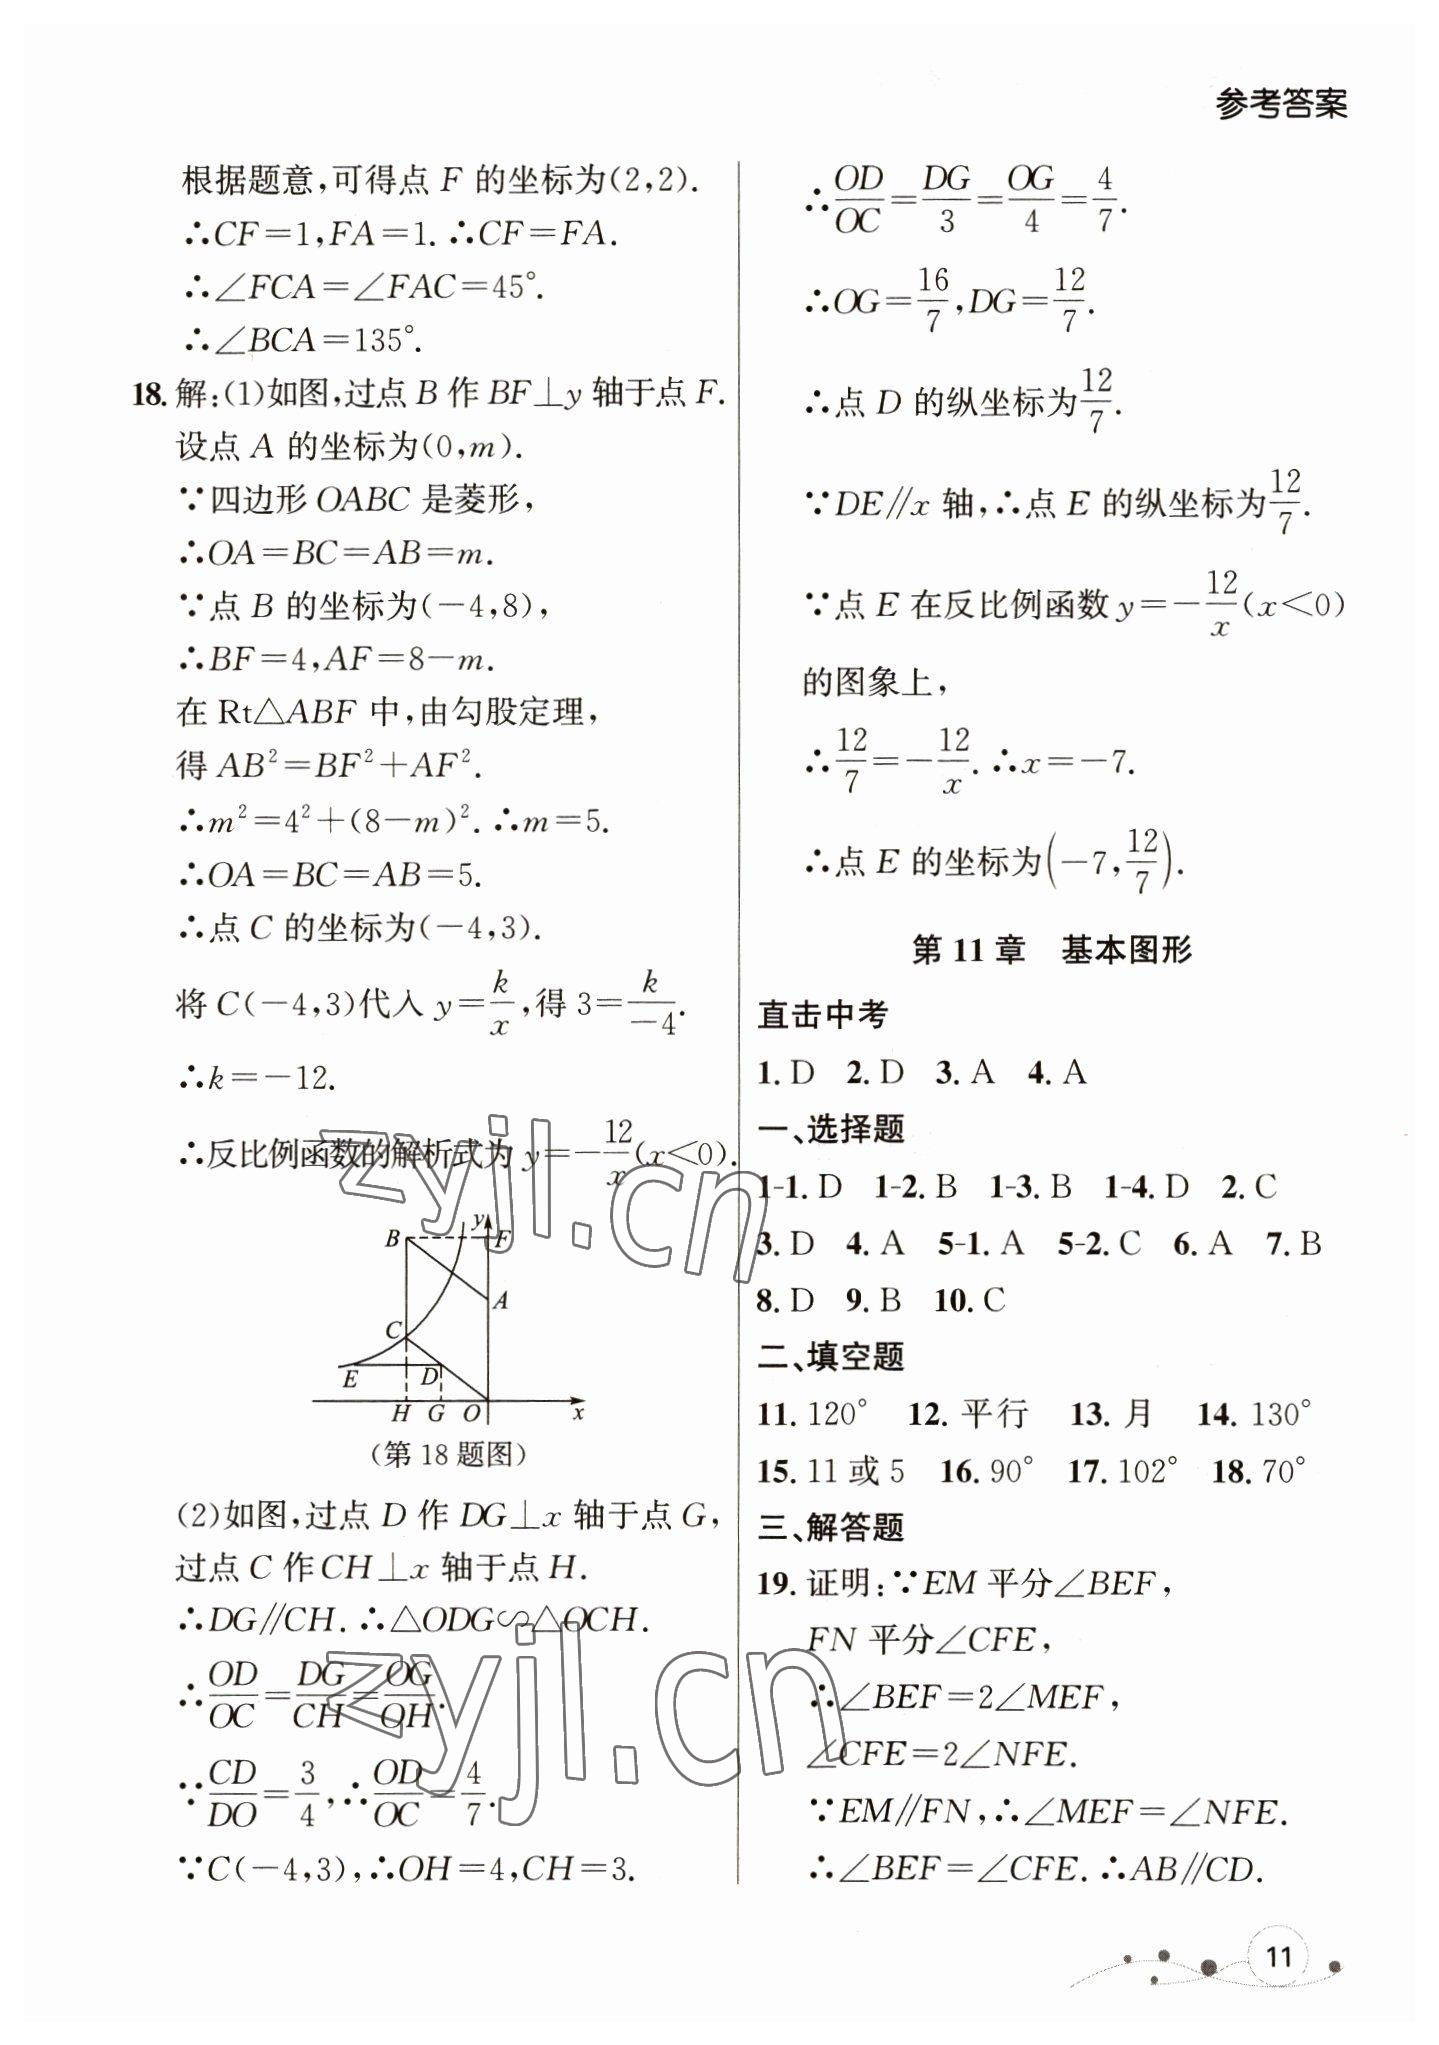 参考答案
根据题意,可得点 F 的坐标为(2,2).
∴CF=1,FA=1.∴CF=FA.
∴∠FCA=∠FAC=45°.
∴∠BCA=135°.
18. 解:(1)如图,过点 B 作 BF⊥y 轴于点 F.
设点 A 的坐标为(0,m).
∵四边形 OABC 是菱形,
∴OA=BC=AB=m.
∵点 B 的坐标为(-4,8),
∴BF=4,AF=8-m.
在 Rt△ABF 中,由勾股定理,
得 AB²=BF²+AF².
∴m²=4²+(8-m)².∴m=5.
∴OA=BC=AB=5.
∴点 C 的坐标为(-4,3).
将 C(-4,3)代入 y=k/x,得 3=k/-4.
∴k=-12.
∴反比例函数的解析式为 y=-12/x(x<0).
y
B F
A
C
E D
H G O x
(第 18 题图)
(2)如图,过点 D 作 DG⊥x 轴于点 G,
过点 C 作 CH⊥x 轴于点 H.
∴DG∥CH.∴△ODG∽△OCH.
∴OD/OC=DG/CH=OG/OH.
∵CD/DO=3/4,∴OD/OC=4/7.
∵C(-4,3),∴OH=4,CH=3.
∴OD/OC=DG/3=OG/4=4/7.
∴OG=16/7,DG=12/7.
∴点 D 的纵坐标为12/7.
∵DE∥x 轴,∴点 E 的纵坐标为12/7.
∵点 E 在反比例函数 y=-12/x(x<0)
的图象上,
∴12/7=-12/x.∴x=-7.
∴点 E 的坐标为(-7,12/7).
第 11 章 基本图形
直击中考
1. D 2. D 3. A 4. A
一、选择题
1-1. D 1-2. B 1-3. B 1-4. D 2. C
3. D 4. A 5-1. A 5-2. C 6. A 7. B
8. D 9. B 10. C
二、填空题
11. 120° 12. 平行 13. 月 14. 130°
15. 11 或 5 16. 90° 17. 102° 18. 70°
三、解答题
19. 证明:∵EM 平分∠BEF,
FN 平分∠CFE,
∴∠BEF=2∠MEF,
∠CFE=2∠NFE.
∵EM∥FN,∴∠MEF=∠NFE.
∴∠BEF=∠CFE.∴AB∥CD.
11
zyjl.cn
zyjl.cn